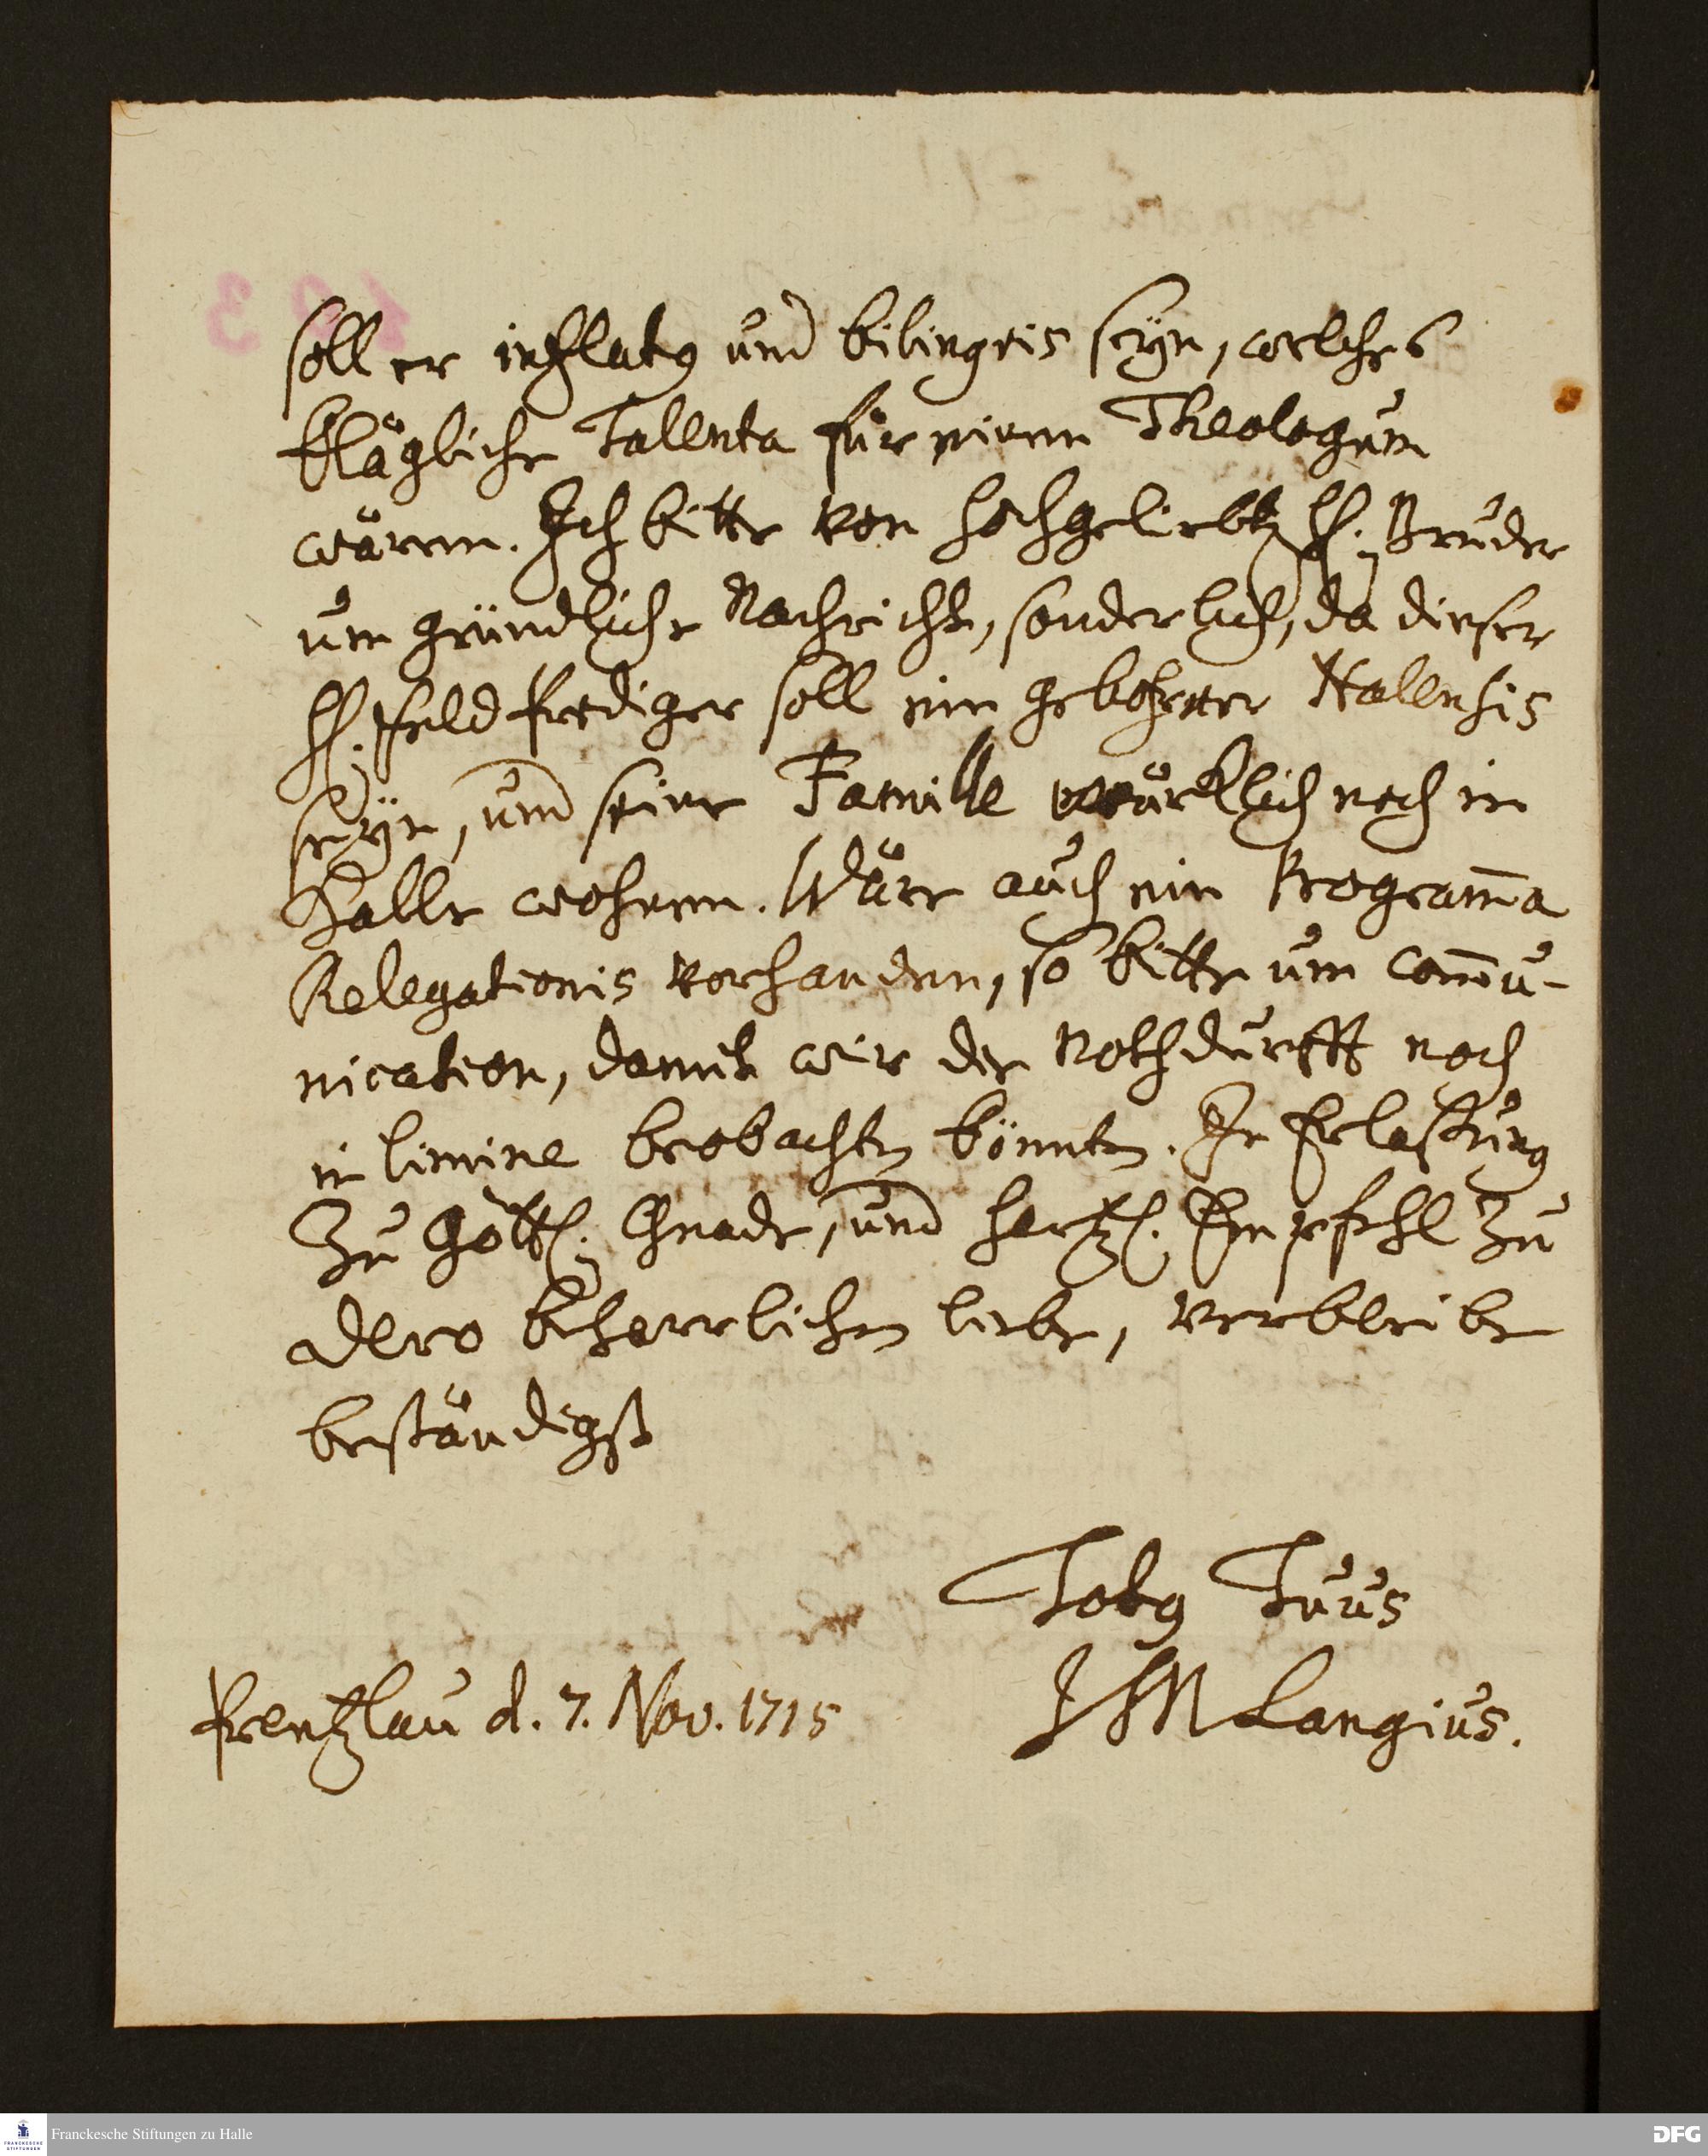 soll er inflatq und bilingvis seyn, welches
klägliche Talenta für einen Theologum
wären. Ich bitte von hochgeliebt H. Bruder
um gründliche Nachricht, sonderlich, da dieser
H. Feldprediger soll ein gebohrner Hallensis
seyn, und seine Famille würklich noch in
Halle wohnen. Wäre auch ein Programma
Relegationis vorhanden, so bitte um Commu-
nication, damit wir der Nothdurfft noch
in limine beobachten könnten. In Erlaßung
Zu Göttl. Gnade, und hertzl. Empfehl Zu
dero beharrlichen liebe, verbleibe
beständigst
Totq Tuus
Prentzlau d. 7. Nov. 1715
JHM Langius.
Franckesche Stiftungen zu Halle
DFG